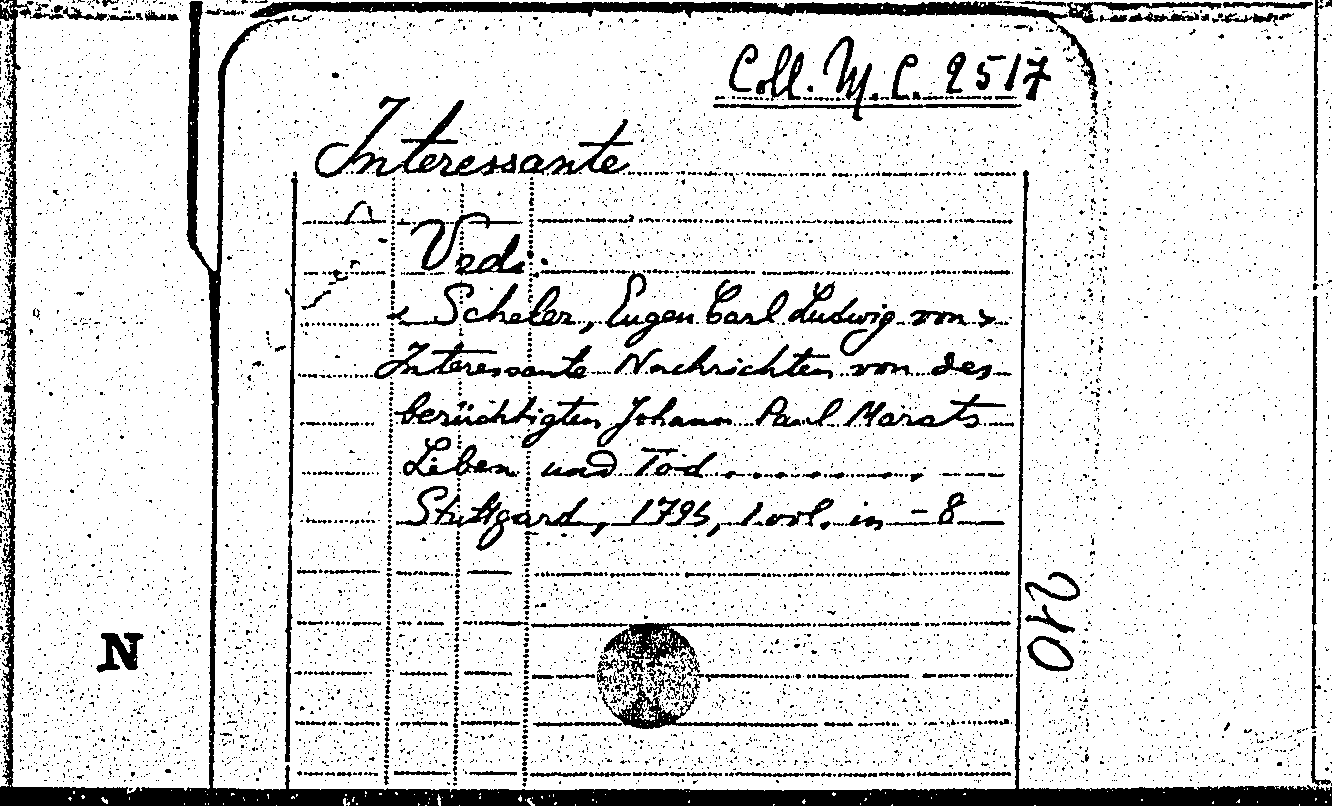 Coll. M. C. 2517
Interessante
Vid.
< Scheler, Eugen Carl Ludwig von >
Interessante Nachrichten von des
berüchtigten Johann Paul Marats
Leben und Tod . . . . . . . . .
Stuttgard, 1794, 1 vol. in -8
210
N